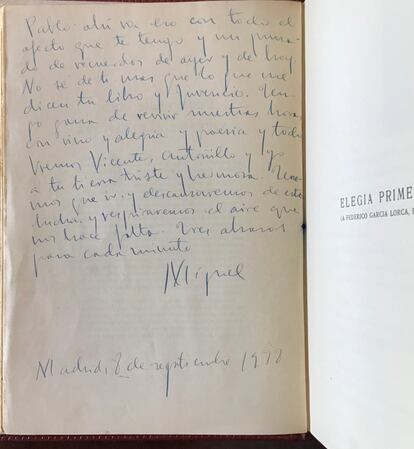 Pablo: ahí va eso con todo el
afecto que te tengo y un puña-
do de recuerdos de ayer y de hoy.
No sé de ti mas que lo que me
dicen tu libro y Juvencio. Ten-
go gana de revivir nuestras horas
con vino y alegría y poesía y todo
Iremos Vicente, Antonillo y yo
a tu tierra triste y hermosa. Tene-
mos que ir y descansaremos de esta
lucha y respiraremos el aire que
nos hace falta. Tres abrazos
para cada minuto
Miguel
Madrid, 8 de septiembre 193
ELEGIA PRIME
(A FEDERICO GARCIA LORCA,